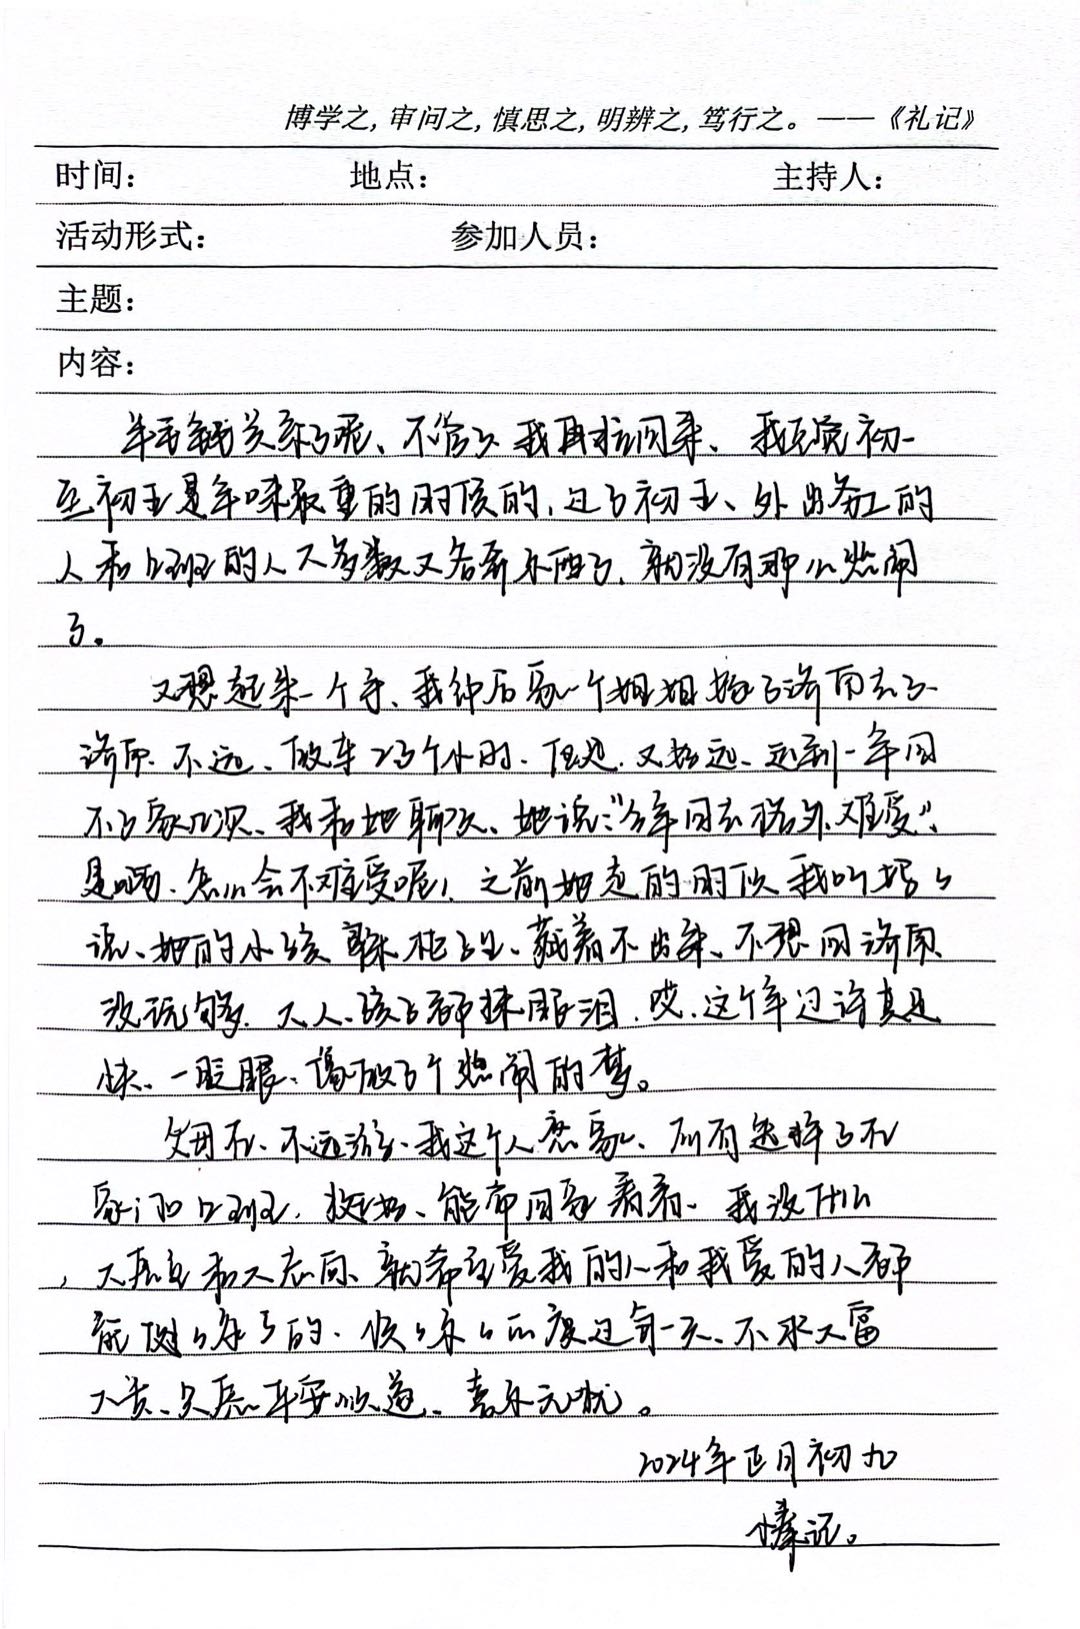 博学之,审问之,慎思之,明辨之,笃行之。——《礼记》
时间： 地点： 主持人：
活动形式： 参加人员：
主题：
内容：
半毛钱关系了呢、不管了 我再拉回来、我玩完初一
至初五是年味最重的时候的,过了初五、外出务工的
人和上班的人大多数又各奔东西了,就没有那么热闹
了。
又想起来一个事、我 后家一个姐姐 了济 去了
济原 不远、开车2 3个小时、但是,又 远、远到一年回
不了家几次、我和她聊天、她说:“今年回去格外难受”、
是啊、怎么会不难受呢!之前她走的时候我听妈妈
说、她的小孩 、藏着不出来、不想回济原
没说 、大人、孩子都抹眼泪,哎,这个年过 真是
快、一眨眼、像做了个热闹的梦。
父母在、不远游、我这个人恋家、所有选择了在
家门口上班, 、能 回家看看、我没什么
大 和大志向、就希望爱我的人和我爱的人都
能健健康康的、快快乐乐的度过每一天、不求大富
大贵、只愿平安顺遂、喜乐无忧。
2024年正月初九
记。